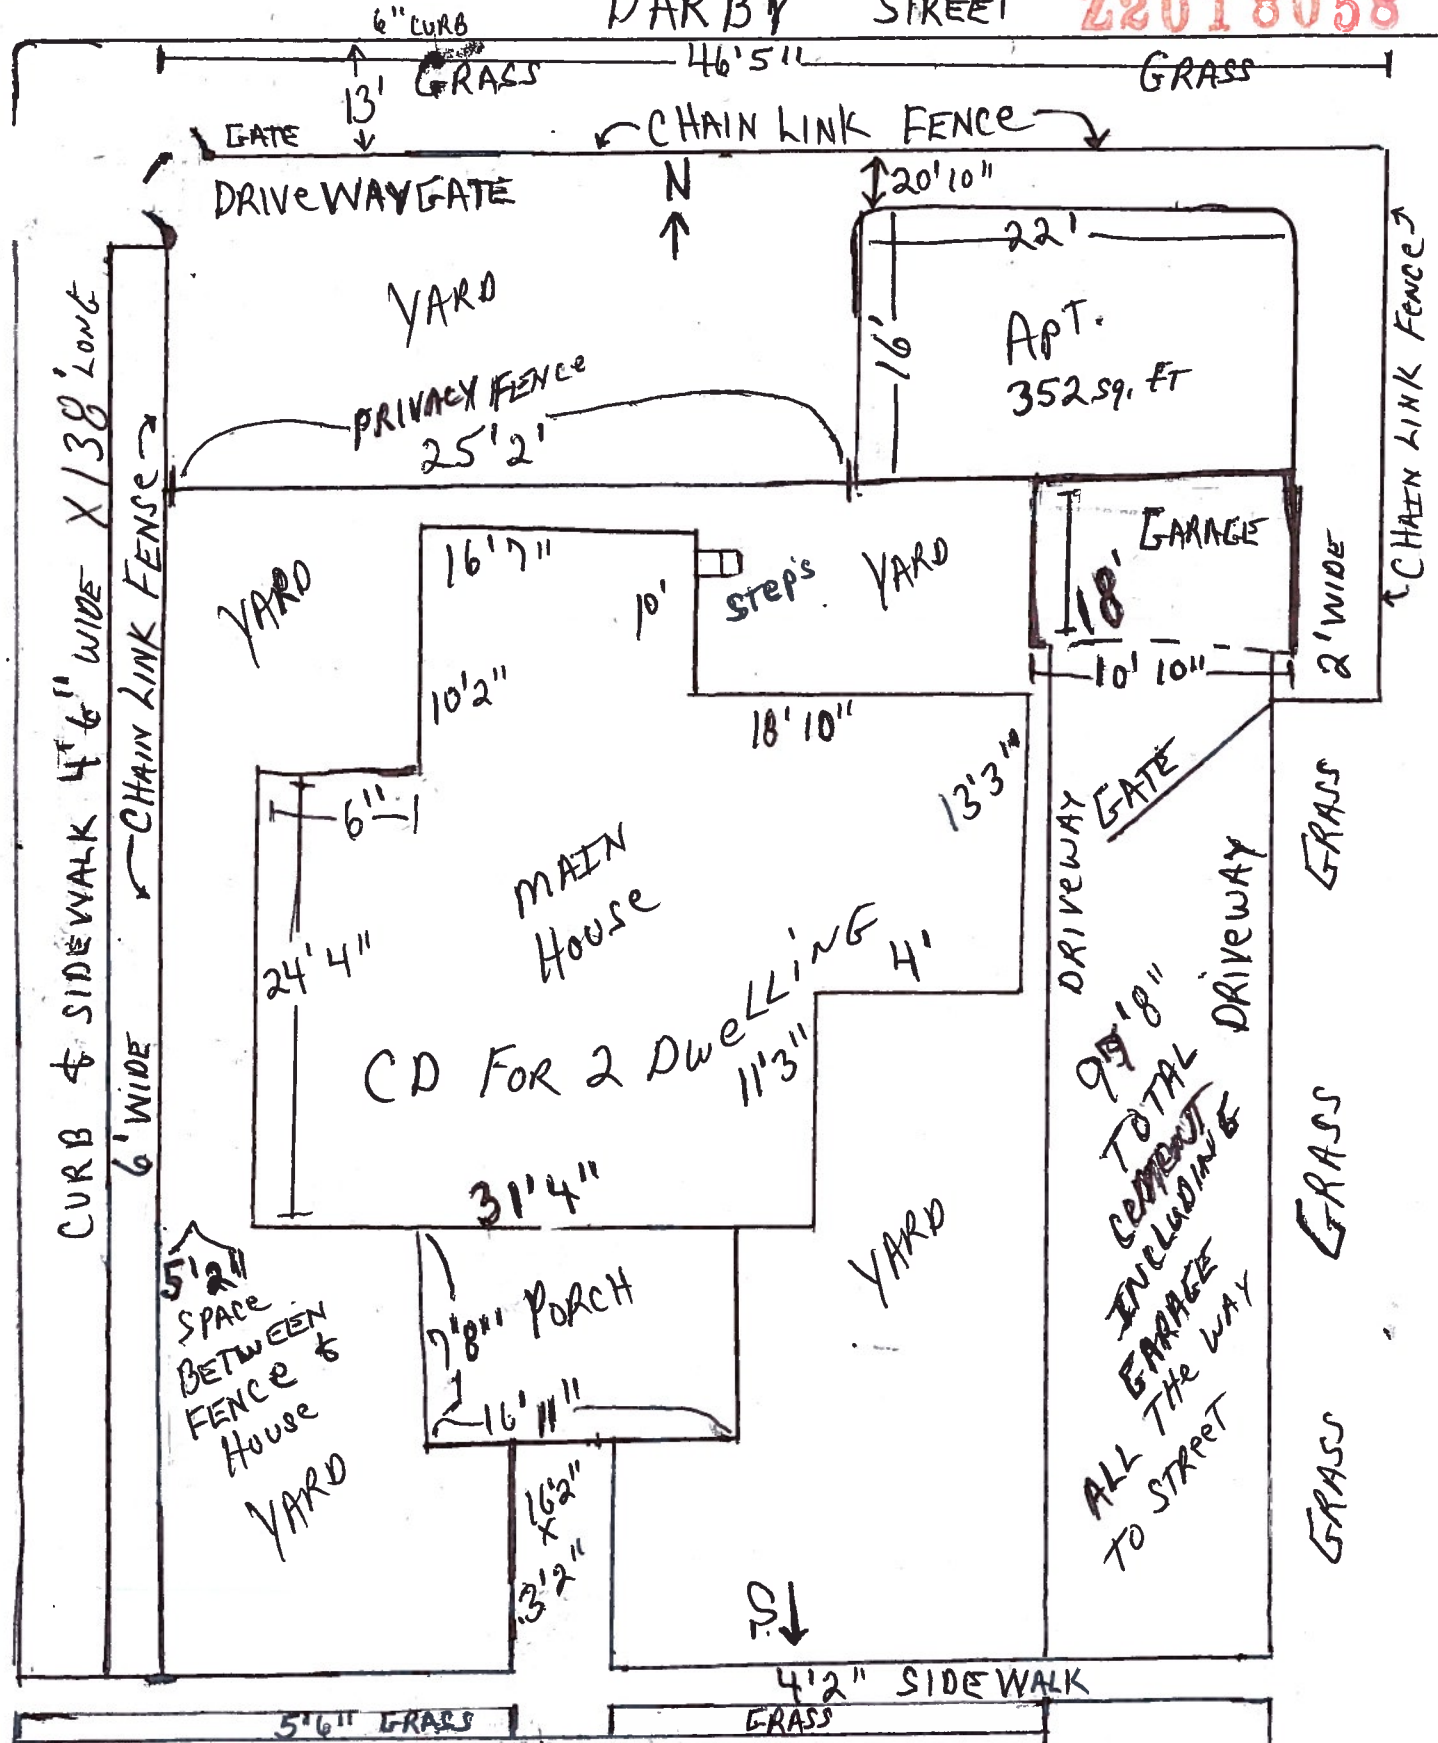 6" CURB
DARBY STREET
Z2018058
GRASS
46'5"
GRASS
13'
GATE
CHAIN LINK FENCE
DRIVEWAY GATE
N
20'10"
22'
YARD
16'
APT.
352 sq. FT
CHAIN LINK FENCE
PRIVACY FENCE
25'2'
CURB & SIDEWALK 4'6" WIDE X 138' LONG
CHAIN LINK FENSE
6' WIDE
YARD
16'7"
10'
STEP'S
YARD
GARAGE
18'
10' 10"
2' WIDE
10'2"
18'10"
13'3"
6"
24'4"
MAIN
HOUSE
CD FOR 2 DWELLING
4'
11'3"
31'4"
GATE
DRIVEWAY
DRIVEWAY
GRASS
GRASS
GRASS
'8"
TOTAL
CEMENT
INCLUDING
GARAGE
ALL THE WAY
TO STREET
5'2"
SPACE
BETWEEN
FENCE &
HOUSE
YARD
7'8"
PORCH
16'11"
YARD
16'2"
X
3'2"
S.
4'2" SIDEWALK
5'6" GRASS
GRASS